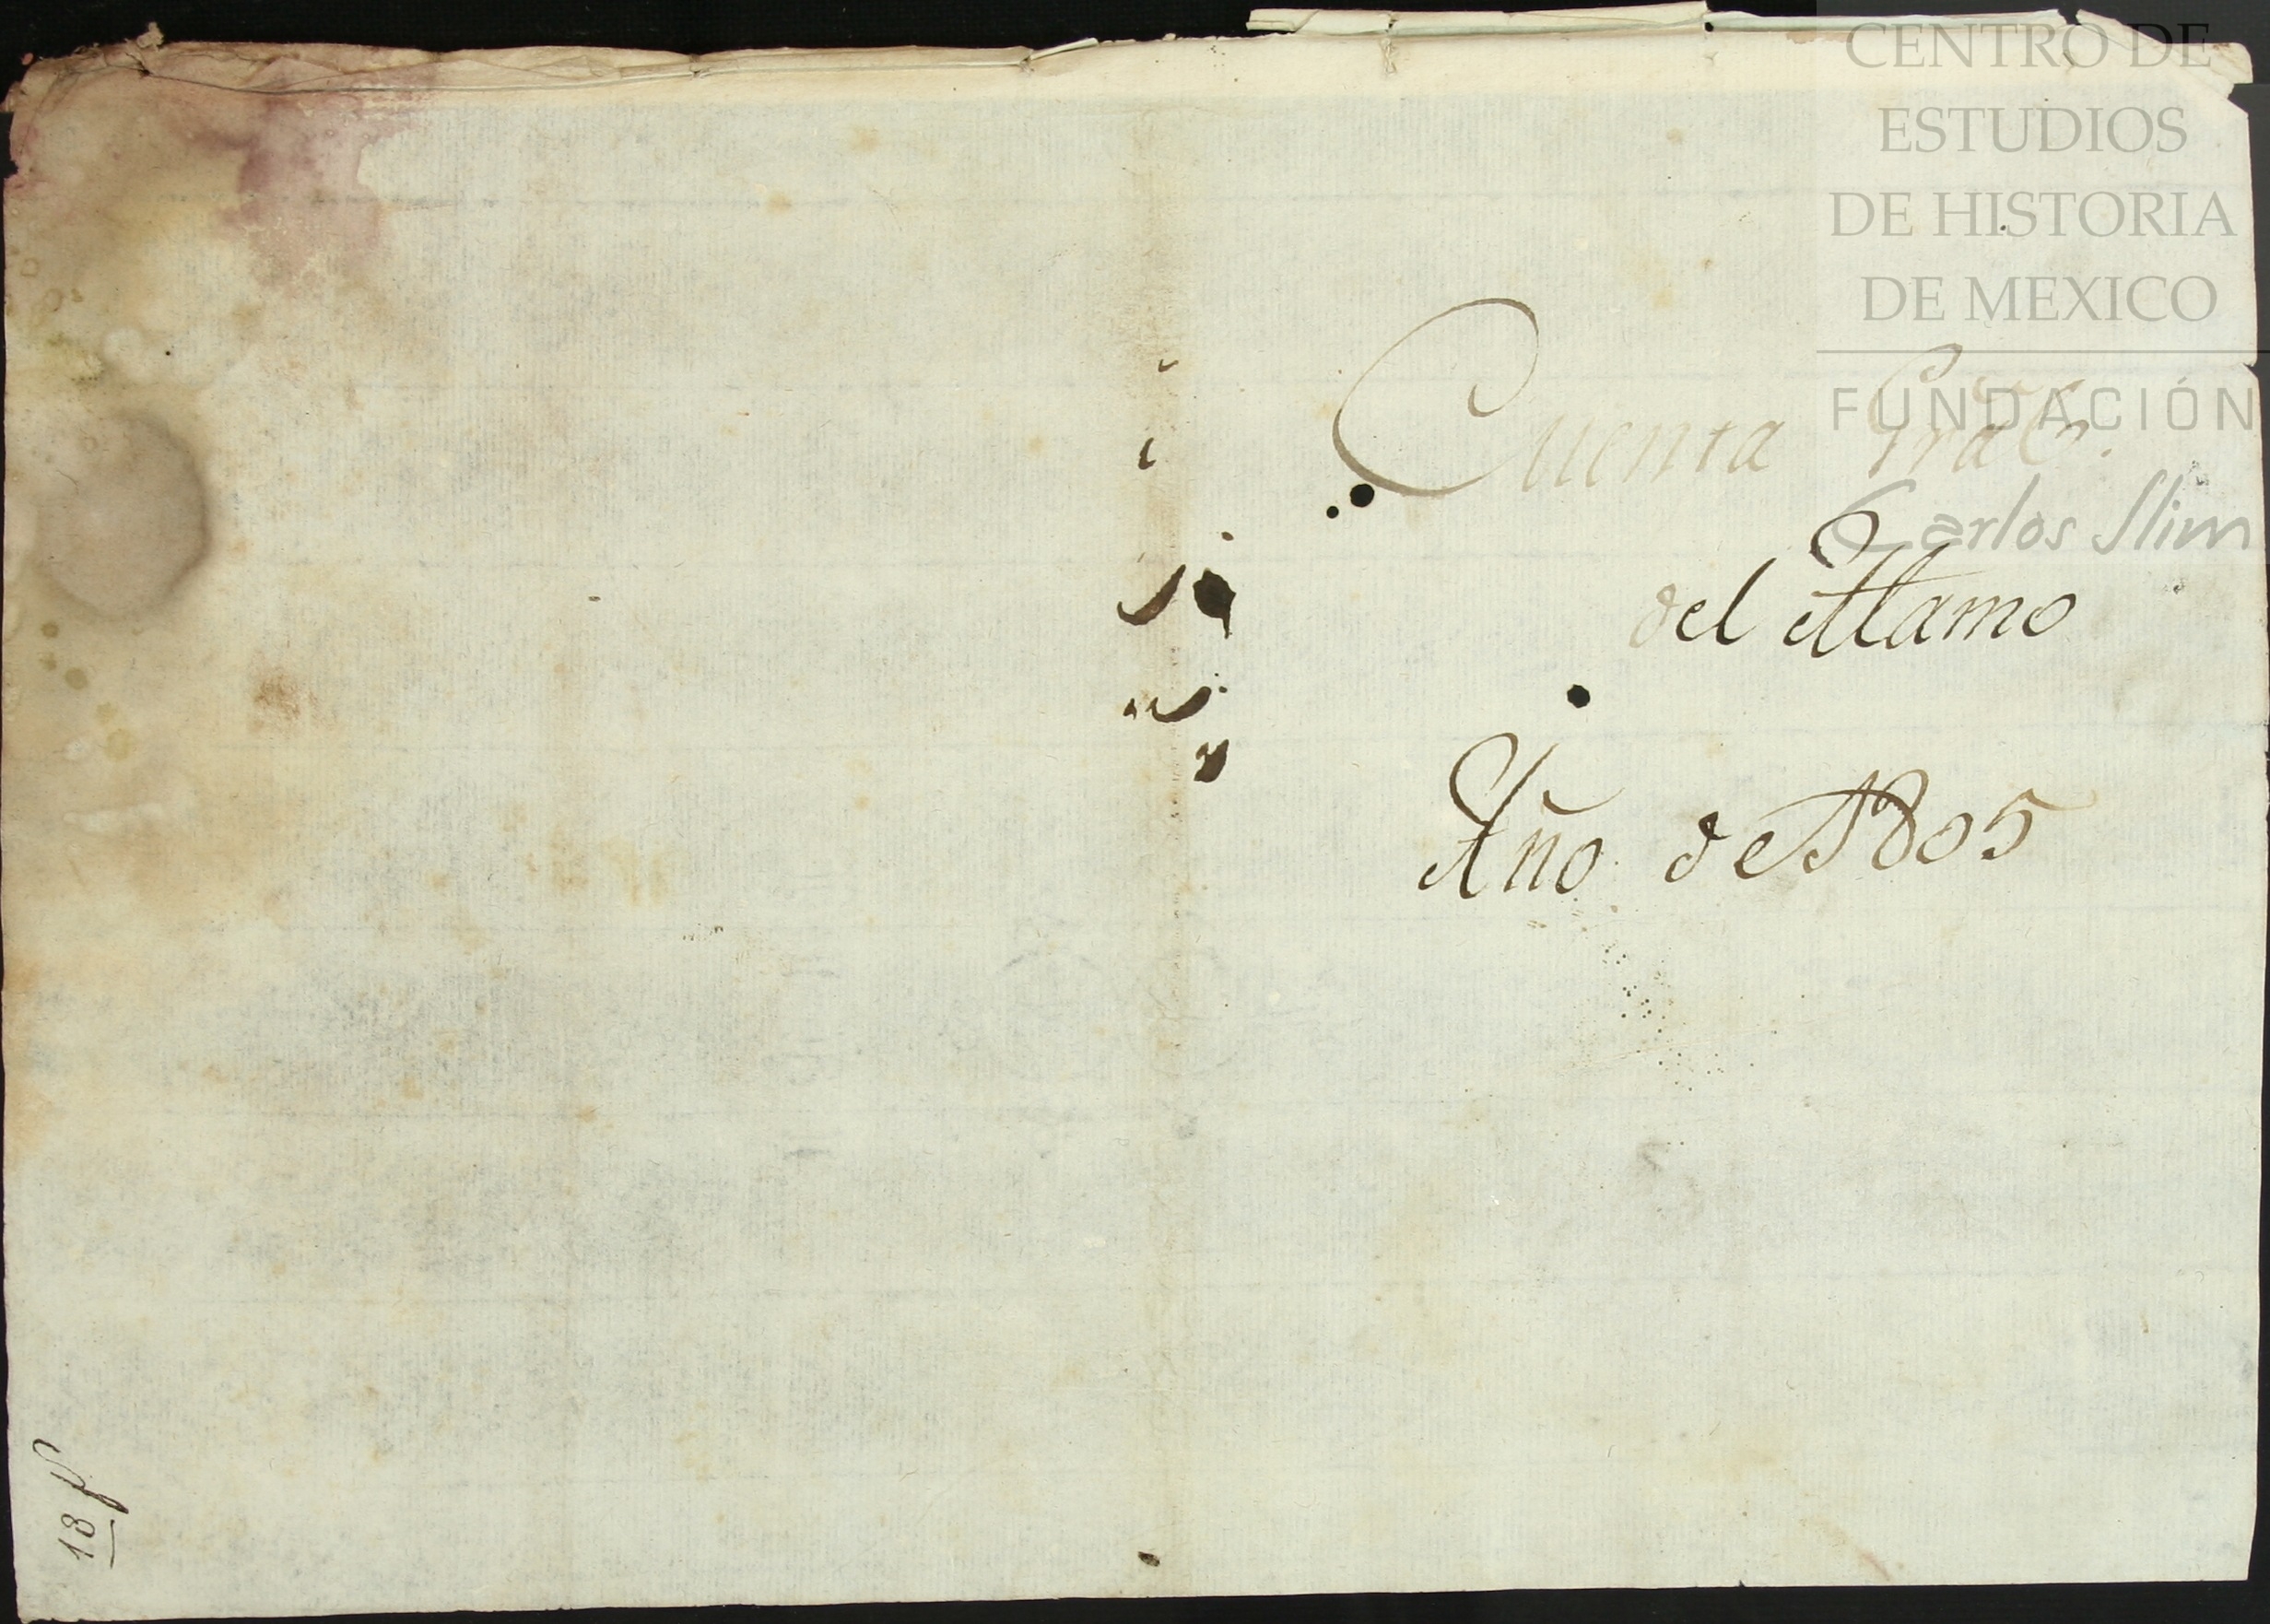 CENTRO DE
ESTUDIOS
DE HISTORIA
DE MEXICO
FUNDACIÓN
Carlos Slim
Cuenta Gral.
del Alamo
Año de 1805
18 f